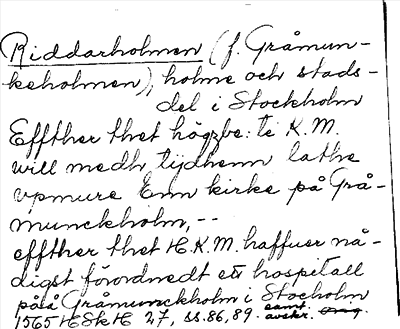 Riddarholmen (f. Gråmun-
keholmen), holme och stads-
del i Stockholm
Effther thet högzbe:te K.M.
will medh tijdhenn lathe
vpmure Enn kirke på Grå-
munckholm, --
effther thet H.K.M. haffuer nå-
digst förordnedt ett hospitall
på Gråmunckholm i Stockholm
1565 HSkH 27, ss. 86, 89. samt. avskr.